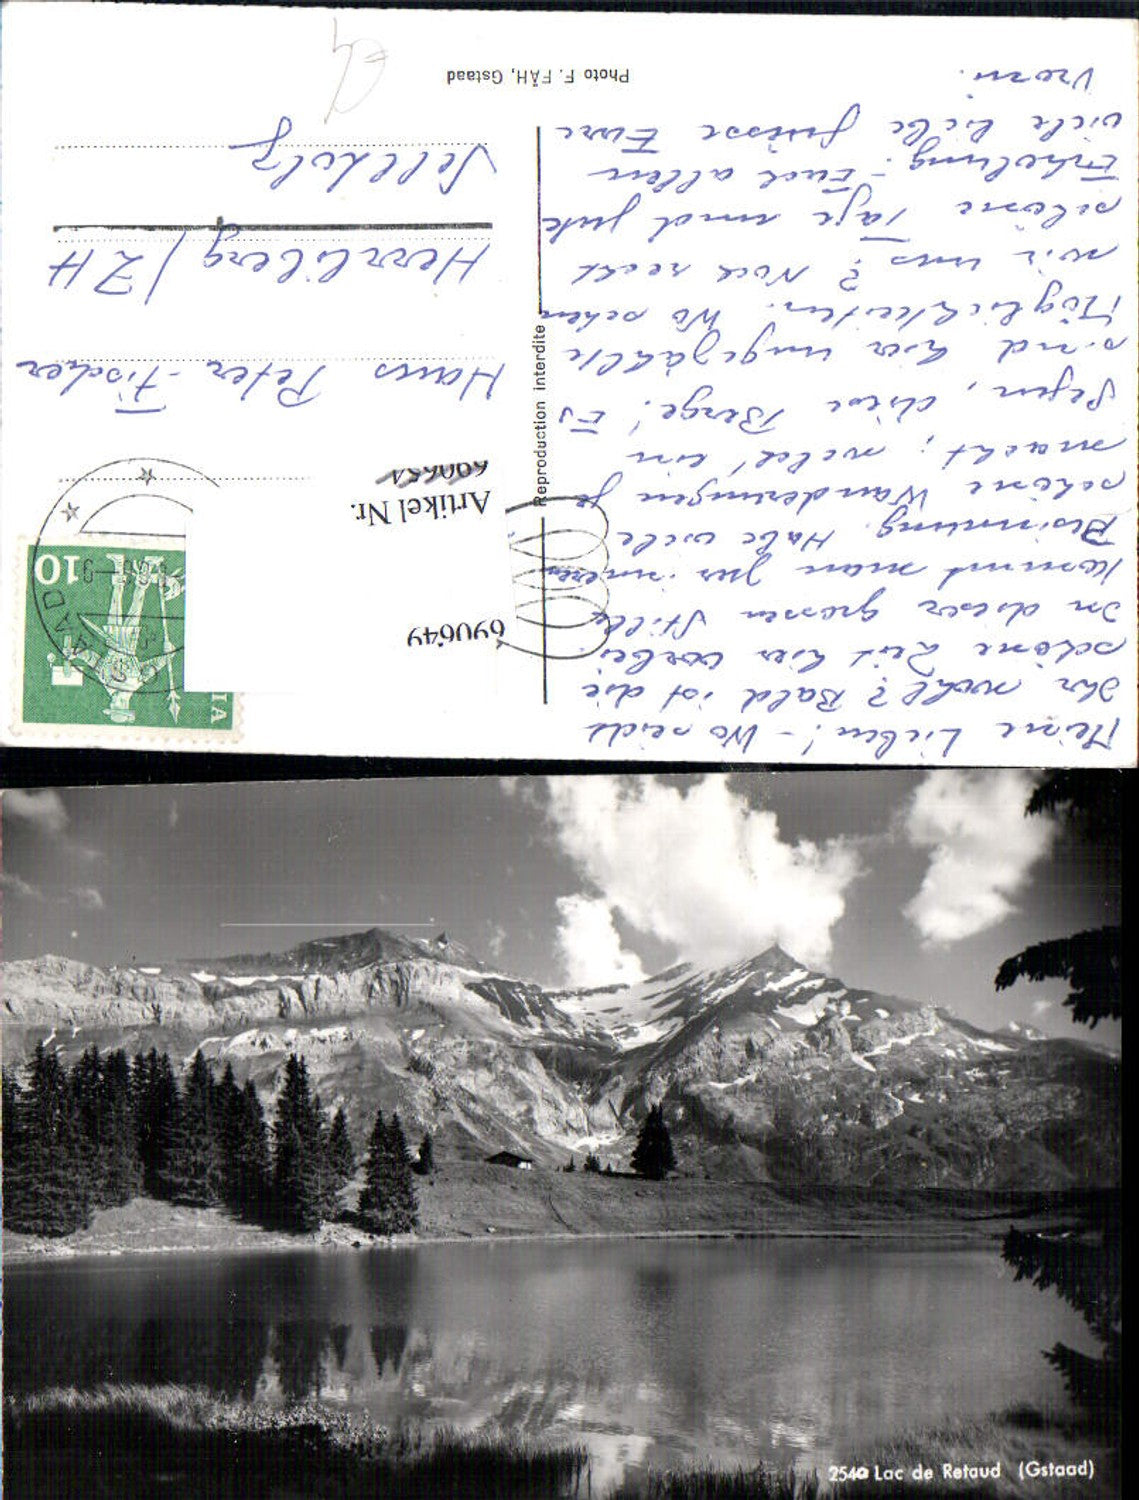 Meine Lieben! – Wo seid
Ihr wohl? Bald ist die
schöne Zeit hier vorbei.
In dieser grossen Stille
kommt man zur inneren
Besinnung. Habe viele
schöne Wanderungen ge
macht; welch' ein
Segen, diese Berge! Es
sind hier ungezählte
Möglichkeiten. Wo sehen
wir uns? Noch recht
schöne Tage und gute
Erholung. – Euch allen
viele liebe Grüsse Eure
Vreni.
Reproduction interdite
Photo F. FÄH, Gstaad
690649
Artikel Nr.
HELVETIA
10
GSTAAD
Hans Peter-Fischer
Herrliberg / ZH
2540 Lac de Retaud (Gstaad)